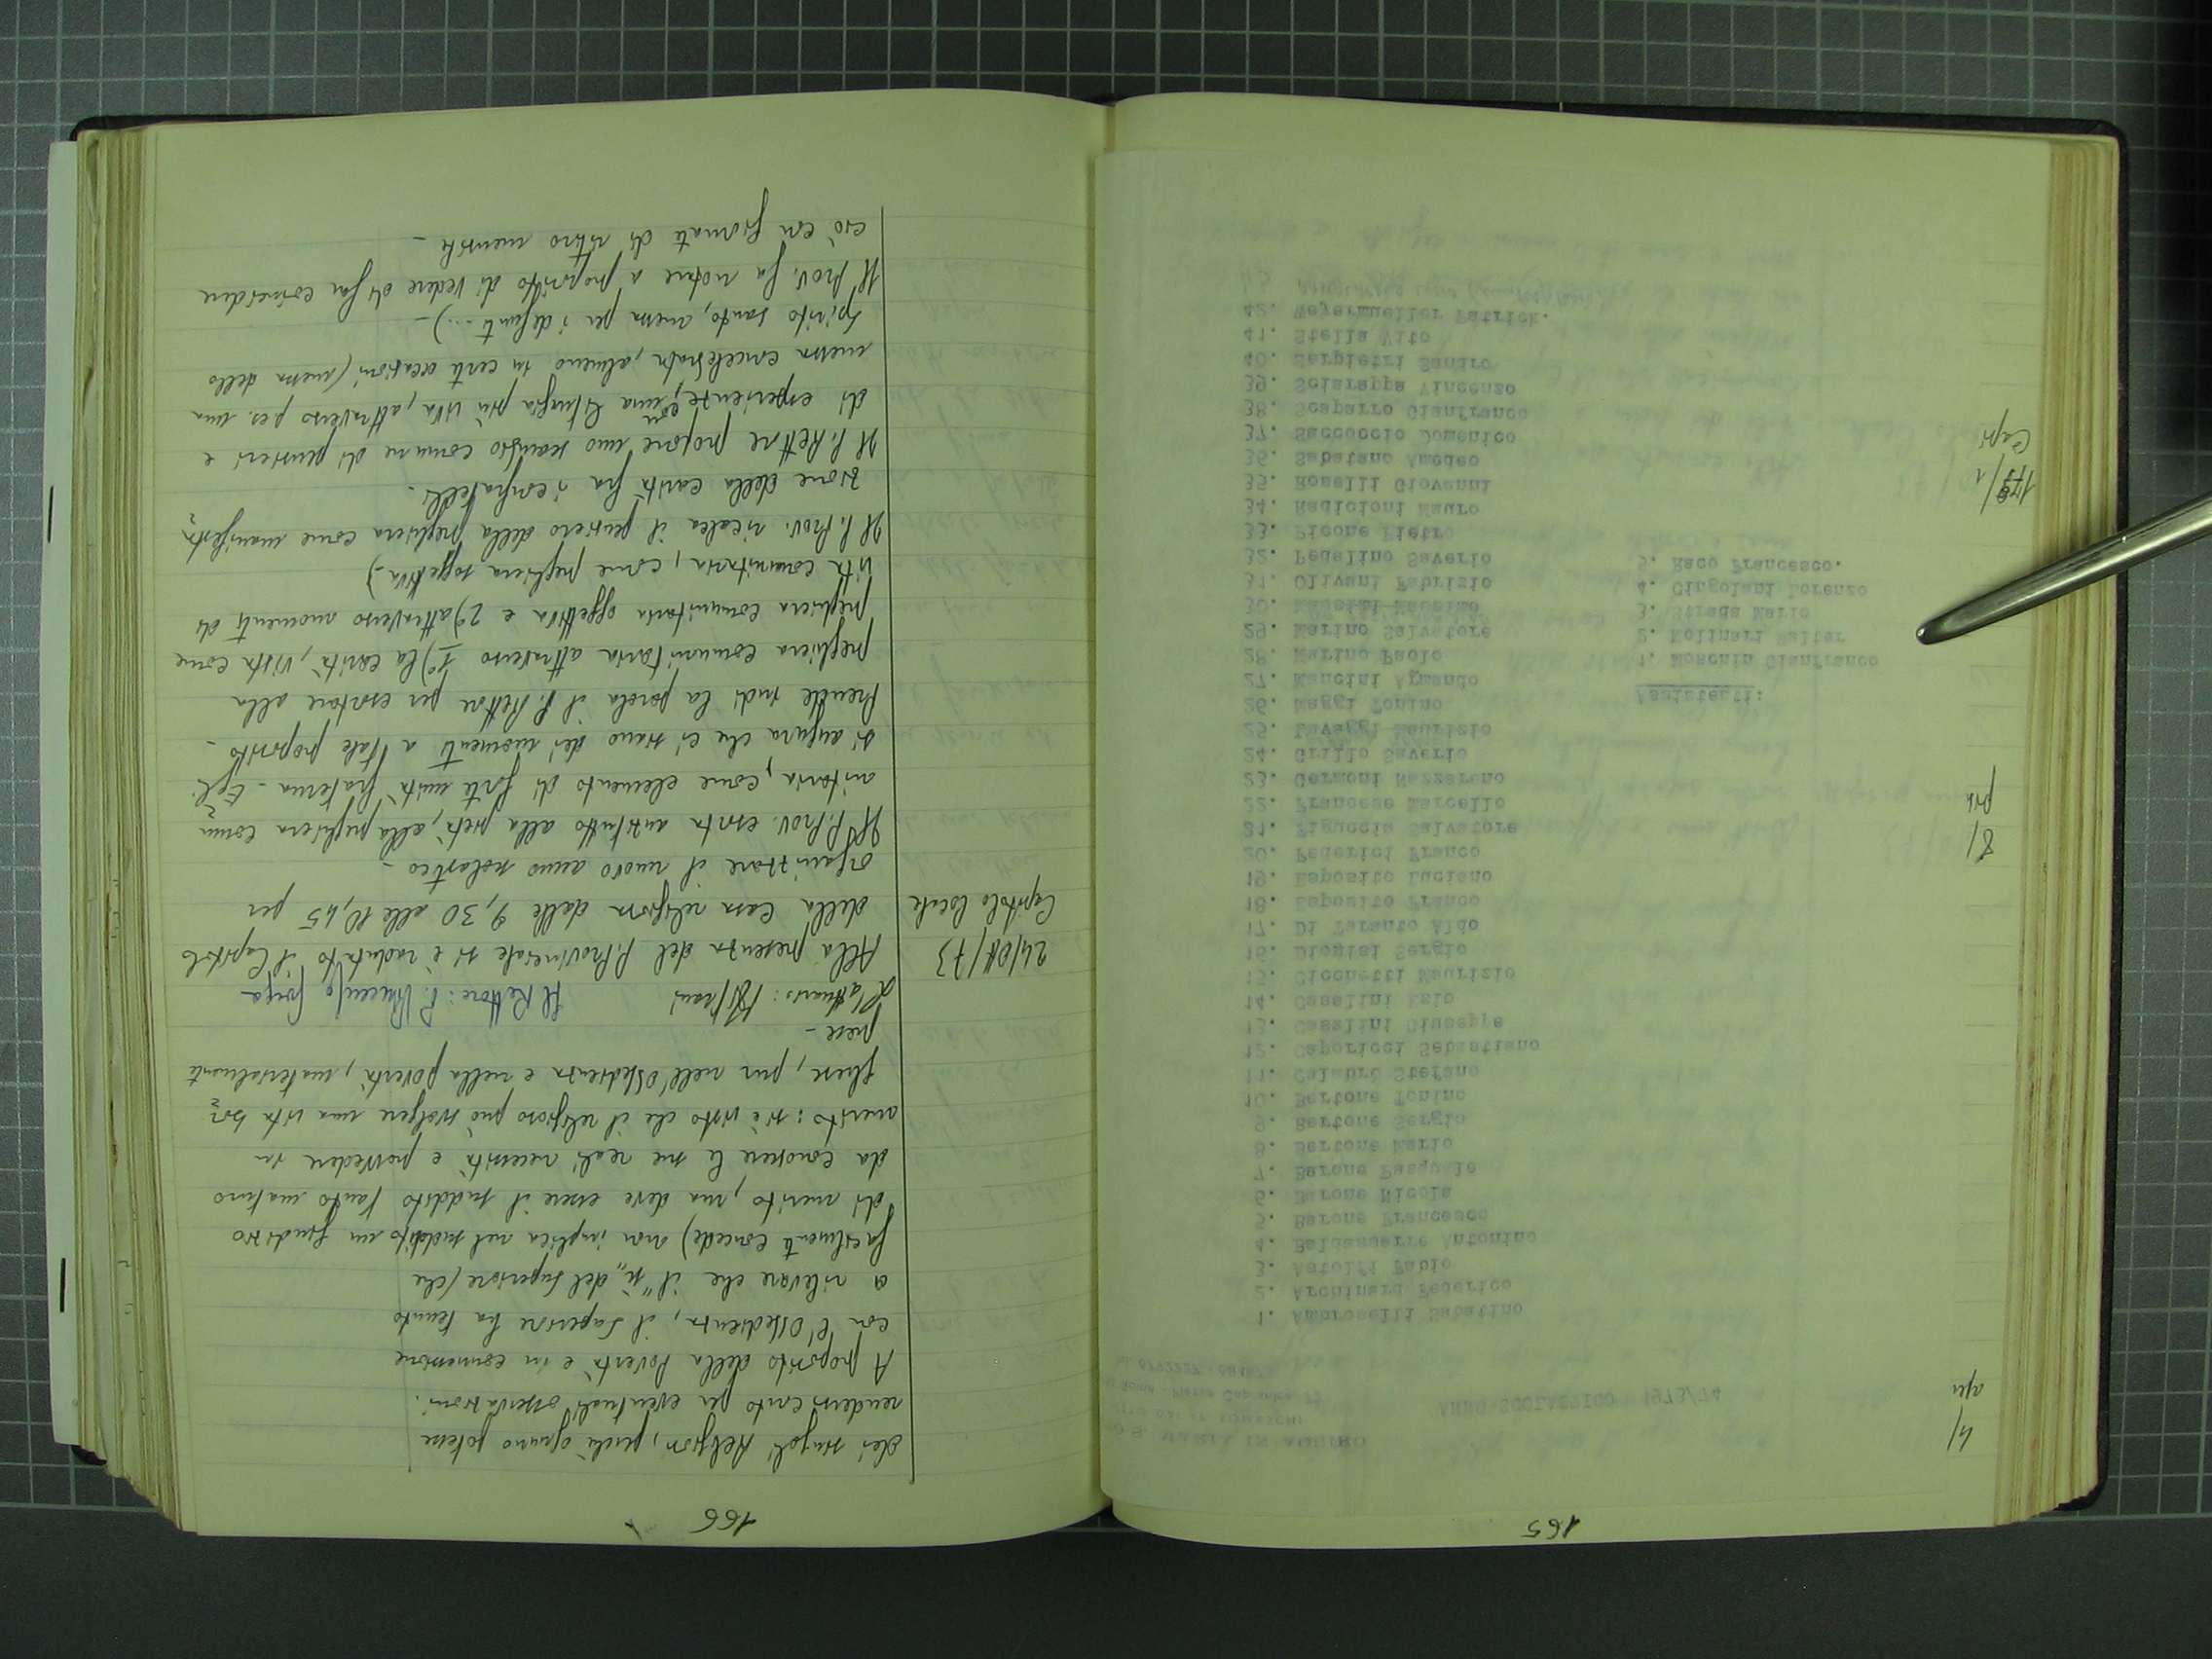 165
ANNO SCOLASTICO 1973/74
1. Ambroselli Sabatino
2. Archinard Federico
3. Astolfi Fabio
4. Baldassarre Antonino
5. Barone Francesco
6. Barone Nicola
7. Barone Pasquale
8. Bertone Mario
9. Bertone Sergio
10. Bertone Tonino
11. Calabrò Stefano
12. Caporicci Sebastiano
13. Casalini Giuseppe
14. Casalini Ezio
15. Cicchetti Maurizio
16. Dionisi Sergio
17. Di Taranto Aldo
18. Esposito Franco
19. Esposito Luciano
20. Federici Franco
21. Figuccia Salvatore
22. Francese Marcello
23. Germoni Nazzareno
24. Grillo Saverio
25. Lavaggi Maurizio
26. Maggi Tonino
27. Mancini Armando
28. Marino Paolo
29. Marino Salvatore
30.
31. Olivani Fabrizio
32. Pedalino Saverio
33. Picone Pietro
34. Radicioni Mauro
35. Roselli Giovanni
36. Sabatano Amedeo
37. Saccoccio Domenico
38. Scaparro Gianfranco
39. Sciarappa Vincenzo
40. Serpietri Sandro
41. Stella Vito
42. Weyermueller Patrick.
43.
Assistenti:
1. Moschin Gianfranco
2. Molinari Walter
3. Strada Mario
4. Cingolani Lorenzo
5. Raco Francesco.
166
dei singoli Religiosi, perché ognuno potesse
rendersi conto per eventuali osservazioni.
A proposito della Povertà e in connessione
con l'Obbedienza, il Superiore ha tenuto
a rilevare che il "sì" del Superiore (che
facilmente concede) non implica nel suddito un giudizio
di merito, ma deve essere il suddito tanto maturo
da conoscere le sue reali necessità e provvedere in
merito: si è visto che il religioso può svolgere una vita bor=
ghese, pur nell'Obbedienza e nella povertà, materialmente
prese -
L'attuario: Il Rettore: P. Vincenzo Gorga
24/08/73
Capitolo locale
Alla presenza del P. Provinciale si è radunato il Capitolo
della Casa religiosa dalle 9,30 alle 10,45 per
organizzare il nuovo anno scolastico -
Il P. Prov. esorta anzitutto alla pietà, alla preghiera comu=
nitaria, come elemento di forte unità fraterna - Egli
si augura che ci siano dei momenti a tale proposito -
Prende indi la parola il P. Rettore per esortare alla
preghiera comunitaria attraverso 1°) la carità, vista come
preghiera comunitaria oggettiva e 2°) attraverso momenti di
vita comunitaria, come preghiera soggettiva)
Il P. Prov. ricalca il pensiero della preghiera come manifesta=
zione della carità fra i confratelli.
Il P. Rettore propone uno scambio comune di pensieri e
di esperienze, con una liturgia più viva, attraverso p.es. una
messa concelebrata, almeno in certe occasioni (messa dello
Spirito Santo, messa per i defunti ...) -
Il Prov. fa notare a proposito di vedere di far coincidere
ciò con giornate di ritiro mensile -